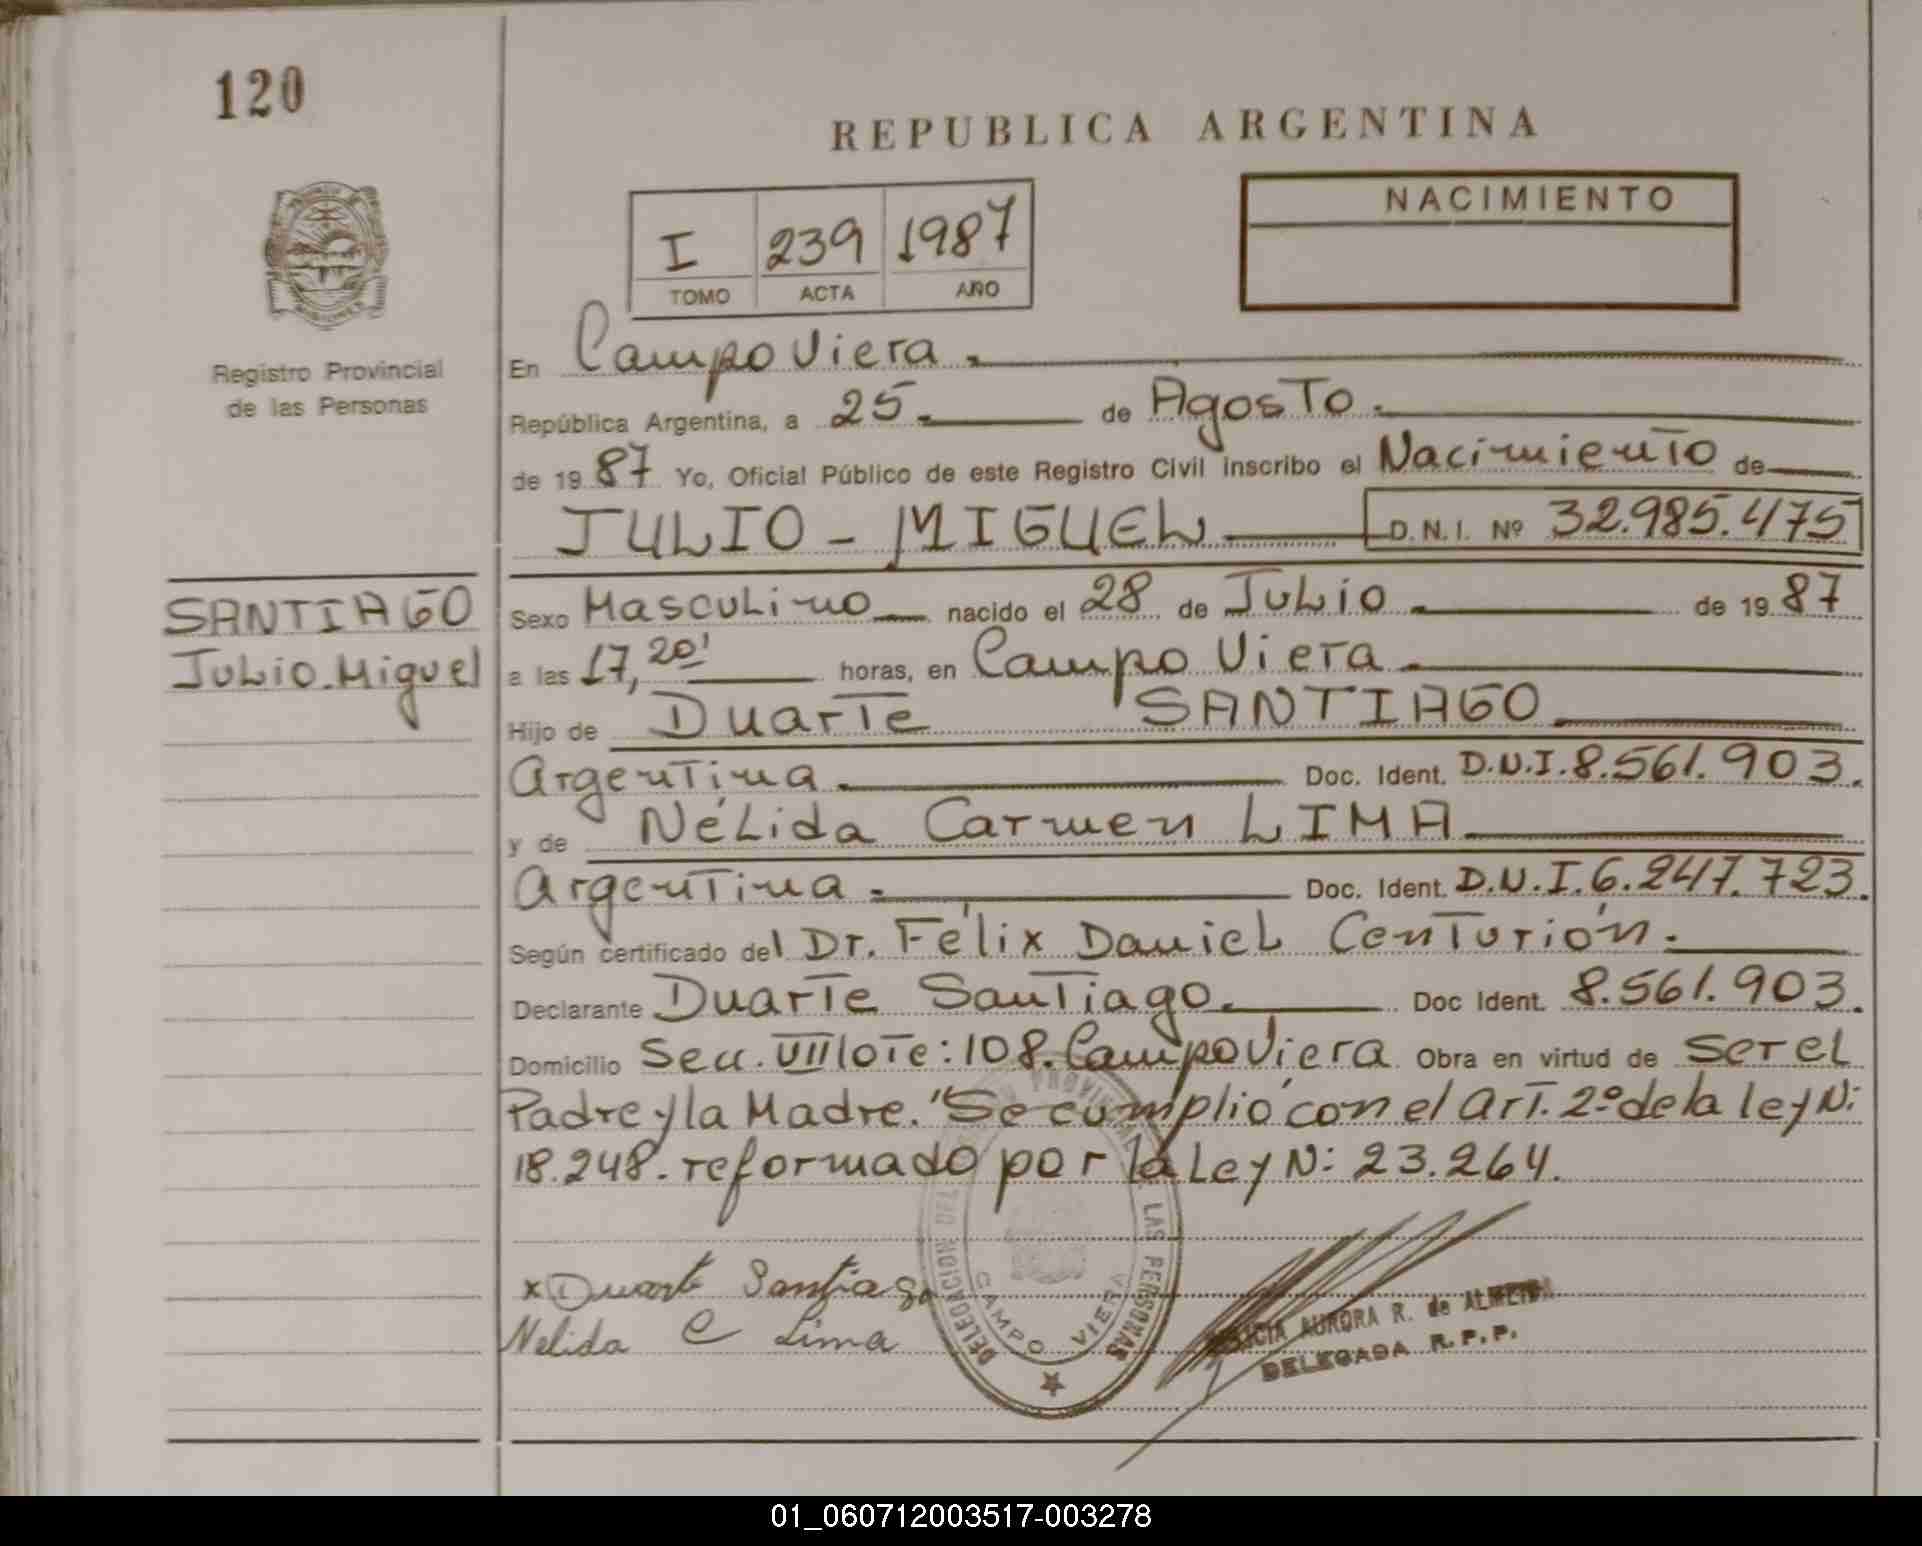 120
REPUBLICA ARGENTINA
NACIMIENTO
I 239 1987
TOMO ACTA AÑO
Registro Provincial
de las Personas
En Campo Viera.
República Argentina, a 25. de Agosto.
de 1987 Yo, Oficial Público de este Registro Civil inscribo el Nacimiento de
JULIO - MIGUEL D.N.I. Nº 32.985.475
SANTIAGO
Julio. Miguel
Sexo Masculino nacido el 28 de Julio. de 1987
a las 17,20' horas, en Campo Viera.
Hijo de Duarte SANTIAGO.
Argentina. Doc. Ident. D.N.I. 8.561.903.
y de Nélida Carmen LIMA
Argentina. Doc. Ident. D.N.I. 6.247.723.
Según certificado del Dr. Félix Daniel Centurión.
Declarante Duarte Santiago. Doc Ident. 8.561.903.
Domicilio Secc. VIII lote: 108. Campo Viera Obra en virtud de ser el
Padre y la Madre. "Se cumplió con el art. 2º de la ley N:
18.248. reformado por la Ley N: 23.264.
x Duarte Santiago
Nelida C Lima
DELEGACION DEL PROVINCIAL LAS PERSONAS
CAMPO VIERA
AURORA R. de ALMEIDA
DELEGADA R.P.P.
01_060712003517-003278